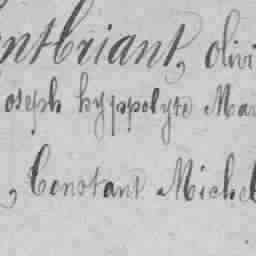 ntbriant, olivi
oseph hyppolyte Mar
, Constant Michel